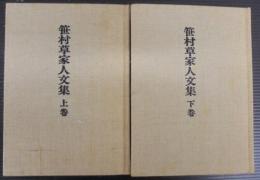 笹村草家人文集 上巻
笹村草家人文集 下巻